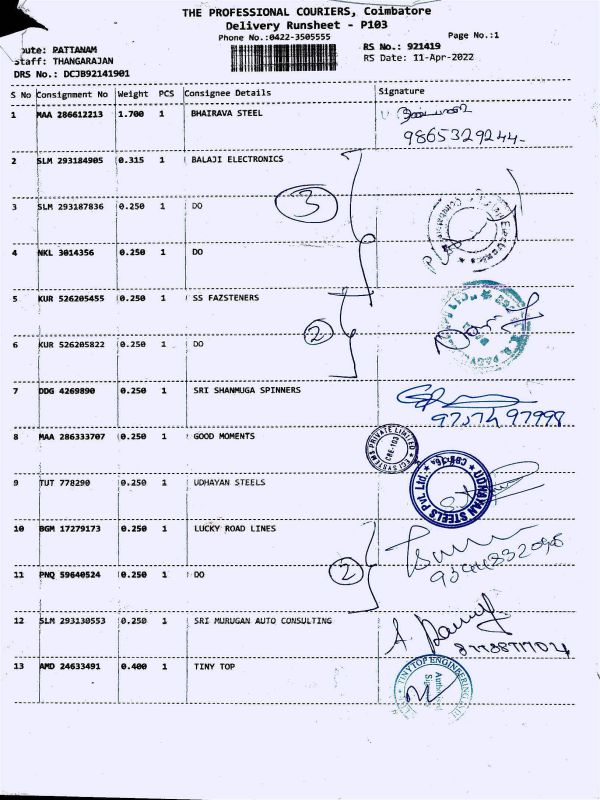 THE PROFESSIONAL COURIERS, Coimbatore
Delivery Runsheet - P103
Phone No.:0422-3505555
Page No.:1
oute: PATTANAM
RS No.: 921419
Staff: THANGARAJAN
RS Date: 11-Apr-2022
DRS No.: DCJB92141901
S No Consignment No Weight PCS Consignee Details Signature
1 MAA 286612213 1.700 1 BHAIRAVA STEEL
9865329244
2 SLM 293184905 0.315 1 BALAJI ELECTRONICS
3
3 SLM 293187836 0.250 1 DO
4 NKL 3014356 0.250 1 DO
5 KUR 526205455 0.250 1 SS FAZSTENERS
2
6 KUR 526205822 0.250 1 DO
7 DDG 4269890 0.250 1 SRI SHANMUGA SPINNERS
8 MAA 286333707 0.250 1 GOOD MOMENTS
SYSTEMS PRIVATE LIMITED
CBE-103
9 TUT 778290 0.250 1 UDHAYAN STEELS
UDHAYAN STEELS PVT. Ltd.
10 BGM 17279173 0.250 1 LUCKY ROAD LINES
2
11 PNQ 59640524 0.250 1 DO
12 SLM 293130553 0.250 1 SRI MURUGAN AUTO CONSULTING
13 AMD 24633491 0.400 1 TINY TOP
TINY TOP ENGINEERING